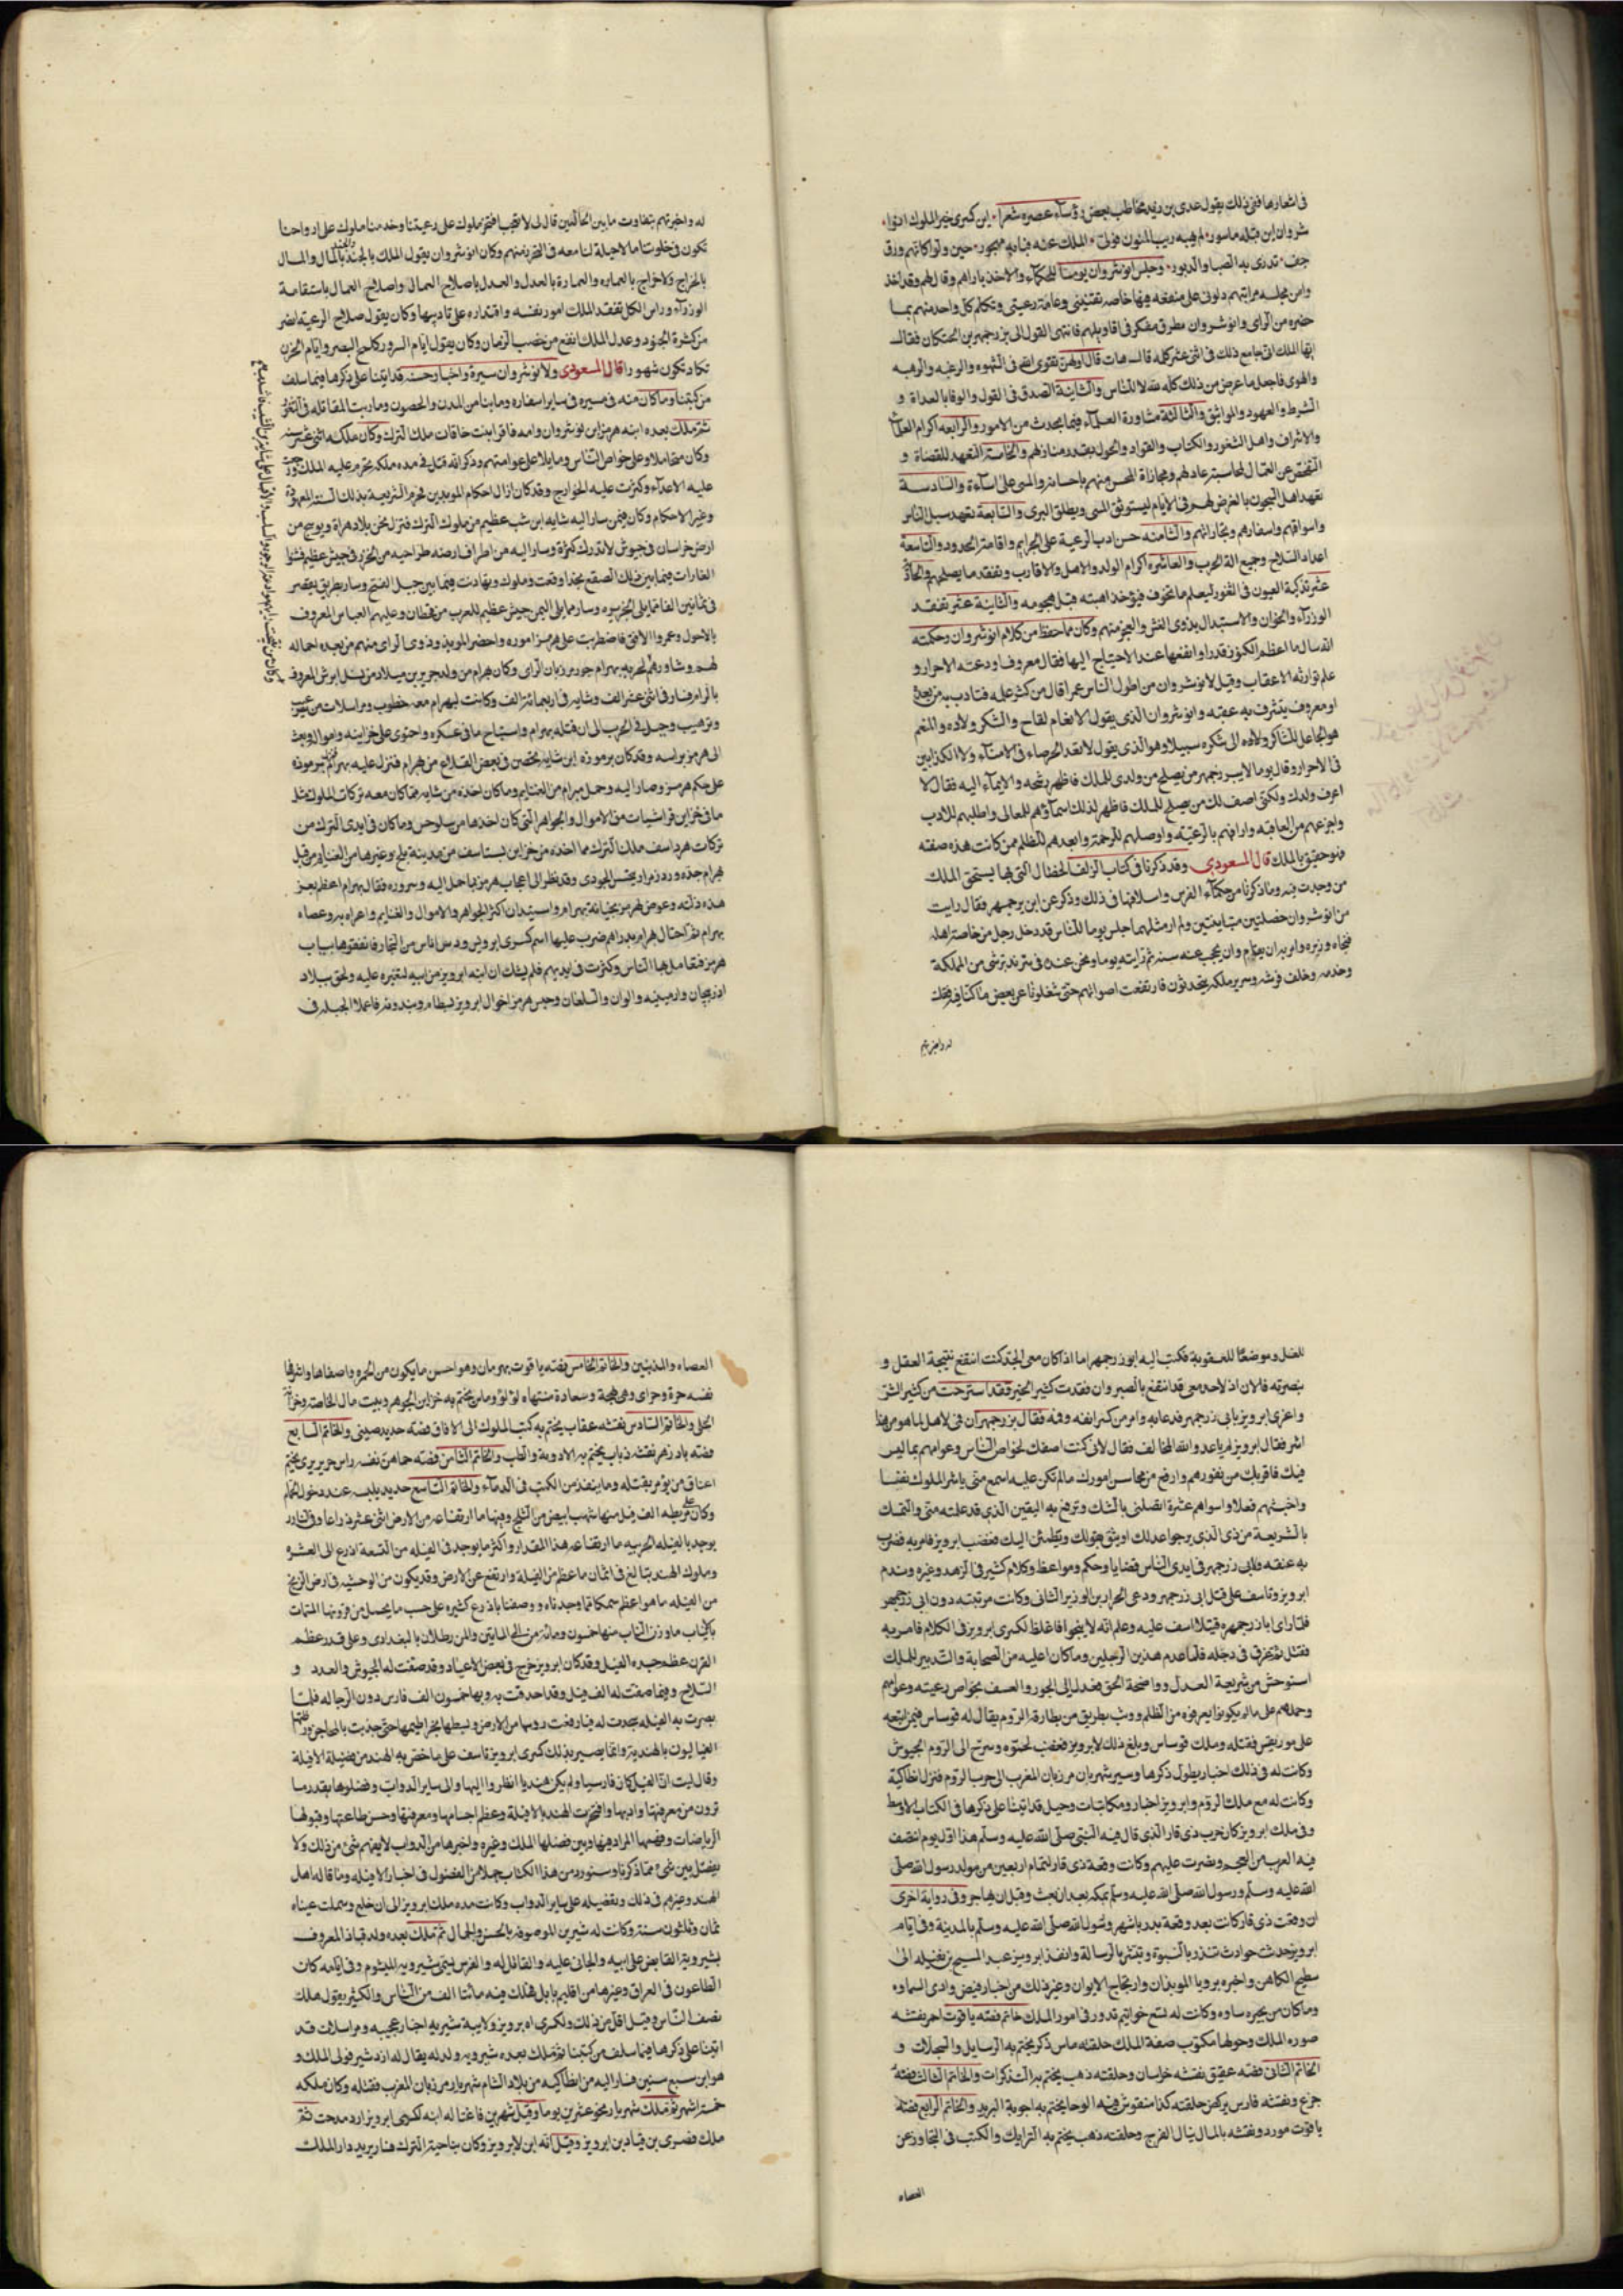 في اشعارها فمن ذلك يقول عدي بن زيد يخاطب بعض رؤساء عصره شعرا اين كسرى خير الملوك انو
شروان اين قبله سابور لم يهبه ريب المنون فولى الملك عنه فبابه مهجور حين ولوا كانهم ورق
جف تذرى به الصبا والدبور وجلس انوشروان يوما للحكماء والاخذ باراهم وقال لهم وقد اخذ
وامن مجلسه مراتبهم دلوني على منفعة فيها خاصة نفسي وعامة رعيتي وتكلم كل واحد منهم بما
حضره من الراي وانوشروان مطرق مفكر في اقاويلهم فانتهى القول الى بزرجمهر بن البختكان فقال
ايها الملك اني جامع ذلك في اثني عشر كلمة قال هات قال اولهن تقوى الله في الشهوة والرغبة والرهبة
والهوى فاجعل ما عرض من ذلك كله لله لا للناس والثانية الصدق في القول والوفا بالعداة و
الشرط والعهود والمواثيق والثالثة مشاورة العلماء فيما يحدث من الامور والرابعة اكرام العلماء
والاشراف واهل الثغور والكتاب والقواد والخول بقدر منازلهم والخامسة التعهد للقضاة و
الفحص عن العمال لمحاسبة عادلهم ومجازاة المحسن منهم باحسانه والمسي على اساءة والسادسة
تعهد اهل السجون بالعرض لهم في الايام ليستوثق المسي ويطلق البرى والسابعة تعهد سبيل الناس
واسواقهم واسفارهم وتجاراتهم والثامنة حسن ادب الرعية على الجرايم واقامة الحدود والتاسعة
اعداد السلاح وجميع الة الحرب والعاشرة اكرام الولد والاهل والاقارب وتفقد ما يصلحهم والحادية
عشر تذكية العيون في الثغور ليعلم ما تخوف فيؤخذ اهبته قبل هجومه والثانية عشر تفقد
الوزراء والخوان والاستبدال بذوي الغش والعجز منهم وكان مما حفظ من كلام انوشروان وحكمته
انه سال ما اعظم الكنوز قدرا وانفعها عند الاحتياج اليها فقال معروف اودعته الاحرار و
علم توارثه الاعقاب وقيل لانوشروان من اطول الناس عمرا قال من كثر علمه فتادب به من بعده
او معروف يتشرف به عقبه وانوشروان الذي يقول الانعام لقاح والشكر ولاده والمنعم
هو الجاعل للشاكر ولاده الى شكره سبيلا وهو الذي يقول لا تعد الحرصاء في الامناء ولا الكذابين
في الاحرار وقال يوما لا يبزرجمهر من يصلح من ولدي للملك فاظهر ترشحه والايماء اليه فقال لا
اعرف ولدك ولكني اصف لك من يصلح للملك فاظهر لذلك اسماؤهم للمعالي واطلبهم للادب
واجزعهم من العاقبة واراقهم بالرعية واوصلهم للرحمة وابعدهم للظلم فمن كانت هذه صفته
فهو حقيق بالملك قال المسعودي وقد ذكرنا في كتاب الزلف الخصال التي بها يستحق الملك
من وجدت فيه وما ذكرناه من حكماء الفرس واسلافها في ذلك وذكر عن ابن بزرجمهر فقال رايت
من انوشروان خصلتين متباينتين ولم ار مثلهما جلس يوما للناس فدخل رجل من خاصة اهله
فنحاه وزيره وامر به ان يقام وان يحجب عنه سنة ثم رايته يوما ونحن عنده في سر ندبر شي من المملكة
وخدمه وخلف فرشه وسرير ملكه يتحدثون فارتفعت اصواتهم حتى شغلونا عن بعض ما كنا فيه فقلت
له واخبرتهم
له واخبرتهم بتفاوت ما بين الحالتين قال لي لا تعجب فنحن ملوك على رعيتنا وخدمنا ملوك على ارواحنا
تكون في خلوتنا ما لا حيلة لنا معه في التحرز منهم وكان انوشروان يقول الملك بالجند والجند بالمال والمال
بالخراج والخراج بالعماره والعمارة بالعدل والعدل باصلاح العمال واصلاح العمال باستقامة
الوزراء وراس الكل تفقد الملك امور نفسه واقتداره على تاديبها وكان يقول صلاح الرعية انصر
من كثرة الجنود وعدل الملك انفع من خصب الزمان وكان يقول ايام السرور كلمح البصر وايام الحزن
تكاد تكون شهورا قال المسعودي ولانوشروان سيرة واخبار حسنه قد اتينا على ذكرها فيما سلف
من كتبنا وما كان منه في مسيره في ساير اسفاره وما بنا من المدن والحصون وما رتب المقاتلة في الثغور
ثم ملك بعده ابنه هرمز ابن نوشروان وامه فاقم ابنت خاقان ملك الترك وكان ملكه اثني عشر سنه
وكان متحاملا وعلى خواص الناس ومايلا على عوامتهم وذكر انه قتل في مده ملكه
عليه الاعداء وكثرت عليه الخوارج وقد كان ازال احكام الموبدين فخرم الشريعة بذلك السنة المعهودة
وغير الاحكام وكان فيمن سار اليه شابه ابن شب عظيم من ملوك الترك فنزل نحو بلاد هراة وبوسنج من
ارض خراسان في جيوش لا تدرك كثرة وسار اليه من اطراف ارضه طراخنه من الخزر في جيش عظيم فشنوا
الغارات فيما بين ذلك الصقع
في ثمانين الفا مما يلي الجزيره وسار مما يلي اليمن جيش عظيم للعرب من قحطان وعليهم العباس المعروف
بالاحول وعمروا الافوه فاضطربت على هرمز اموره واحضر الموبد وذوي الراى منهم من بعد اهماله
لهم وشاورهم
بالرام فسار في اثني عشر الف وشابه في اربعمائة الف وكانت لبهرام معه خطوب ومراسلات من ترغيب
وترهيب وحيل في الحرب الى ان قتله بهرام واستباح ما في عسكره واحتوى على خزاينه وامواله وبعث
الى هرمز براسه وقد كان برموذه ابن شابه تحصن في بعض القلاع من بهرام فنزل عليه بهرام فنزل برموذه
على حكم هرمز وصار اليه وحمل بهرام من الغنايم وما كان اخذه من شابه مما كان معه تركات الملوك مثل
ما في خزاين فراسيات من الاموال والجواهر التي كان اخذها من سياوحس وما كان في ايدي الترك من
تركات هرداسف ملك الترك مما اخذه من خزاين بستاسف من مدينة بلخ وغيرها من الغنايم من قبل
بهرام
هذه
بهرام ثم احتال بهرام بدراهم ضرب عليها اسم كسرى ابرويز ودس اناس من التجار فانفقوها بباب
هرمز فتعامل بها الناس وكثرت في ايديهم فلم يشك ان ابنه ابرويز من ابيه لتغيره عليه ولحق ببلاد
اذربيجان وارمينيه والران والبيلقان وحبس هرمز اخوال ابرويز بسطام وبندويه فاعملا الحيلة في
للقتل وموضعا للعقوبة فكتب اليه ابوزرجمهر اما اذا كان معي الجد كنت انتفع نتيجة العقل و
بصرته فالان اذ لا جد معي قد انتفع بالصبر وان فقدت كثير الخير فقد استرحت من كثير الشر
واغرى ابرويز بابي بزرجمهر فدعا به وامر من كسر انفه وفمه فقال بزرجمهر ان فمي لاهل لما هو شر من هذا
اشر فقال ابرويز لم يا عدو الله المخالف فقال لاني كنت اصفك لخواص الناس وعوامهم بما ليس
فيك فاقربك من نفورهم وارفع من محاسن امورك ما لم تكن عليه اسمع مني يا شر الملوك نفسا
واخبثهم فعلا واسواهم عشرة اتقتلني بالشك وترفع به اليقين الذي قد علمته مني والتمسك
بالشريعة من ذي الذي يرجوا عدلك او يثق بقولك ويطمئن اليك فغضب ابرويز فامر به فضرب
به عنقه ولابي زرجمهر في ايدي الناس قضايا وحكم ومواعظ وكلام كثير في الزهد وغيره وندم
ابرويز وتاسف على قتل ابي زرجمهر ودعي الخرادبن الوزير الثاني وكانت مرتبته دون ابي زرجمهر
فلما راى ابا زرجمهر قتيلا اسف عليه وعلم انه لا ينجوا فاغلظ لكسرى ابرويز في الكلام فامر به
فقتل ثم غرق في دجلة فلما عدم هذين الرجلين وما كانا عليه من الصحابة والتدبير للملك
استوحش من شريعة العدل وواضحة الحق فعدل الى الجور والعسف بخواص رعيته وعوامهم
وحملهم على ما لم يكونوا يعرفوه من الظلم ووثب بطريق من بطارقة الروم يقال له قوساس فيمن اتبعه
على موريقس فقتله وملك قوساس وبلغ ذلك لابرويز فغضب لحموه وسرح الى الروم الجيوش
وكانت له في ذلك اخبار يطول ذكرها وسير شهربان مرزبان المغرب الى حرب الروم فنزل انطاكية
وكانت له مع ملك الروم وابرويز اخبار ومكاتبات وحيل قد اتينا على ذكرها في الكتاب الاوسط
وفي ملك ابرويز كان حرب ذي قار الذي قال فيه النبي صلى الله عليه وسلم هذا اول يوم انتصف
فيه العرب من العجم ونصرت عليهم وكانت وقعة ذي قار لتمام اربعين من مولد رسول الله صلى
الله عليه وسلم ورسول الله صلى الله عليه وسلم بمكه بعد ان بعث وقبل ان يهاجر وفي رواية اخرى
ان وقعت ذي قار كانت بعد وقعة بدر باشهر ورسول الله صلى الله عليه وسلم بالمدينة وفي ايام
ابرويز حدث حوادث تنذر بالنبوة وتبشر بالرسالة وانفذ ابرويز عبد المسيح بن بقيله الى
سطيح الكاهن واخبره برويا الموبذان وارتجاج الايوان وغير ذلك من اخبار فيض وادى السماوه
وما كان من بحيره ساوه وكانت له تسع خواتيم تدور في امور الملك خاتم فصه ياقوت احمر نقشه
صوره الملك وحولها مكتوب صفة الملك حلقته ماس ذكر يختم به الرسايل والسجلات و
الخاتم الثاني فصه عقيق نقشه خراسان وحلقته ذهب يختم به التذكرات والخاتم الثالث فصه
جزع ونقشه فارس يركض حلقته كذا منقوش فيه الوحا يختم به اجوبة البريد والخاتم الرابع فصه
ياقوت مورد ونقشه بالمال ينال الفرج وحلقته ذهب يختم به البرايك والكتب في التجاوز عن
العصاه
العصاه والمذنبين والخاتم الخامس فصه ياقوت بهرمان وهو احسن ما يكون من الحمره واصفاها واشرفها
نقشه حرة وخرای وهي بهجة وسعادة منتهاه لؤلؤ وماس يختم به خزاين الجوهر وبيت مال الخاصة وخزانة
الحلي والخاتم السادس نقشه عقاب يختم به كتب الملوك الى الافاق فصه حديد صيني والخاتم السابع
فصه بادزهر نقشه ذباب يختم به الادوية والطب والخاتم الثامن فصه جماهن نقشه راس خنزير يختم
اعناق من يؤمر بقتله وما ينفذ من الكتب في الدماء والخاتم التاسع حديد يلبسه عند دخول الحمام
وكان على مربطه الف فيل منها اشهب ابيض من الثلج وفيها ما ارتفاعه من الارض اثني عشر ذراعا وفي النادر
يوجد بالفيله الحربيه ما ارتفاعه هذا المقدار واكثر ما يوجد في الفيله من التسعة اذرع الى العشره
وملوك الهند تبالغ في اثمان ما عظم من الفيلة وارتفع عن الارض وقد يكون من الوحشيه في ارض الزنج
من الفيله ما هو اعظم سمكا مما وجدناه ووصفنا باذرع كثيره على حسب ما يحمل من قرونها المسمات
بالانياب ما وزن الناب منها خمسون ومائة من الى المايتين والمن رطلان بالبغدادي وعلى قدر عظم
القرن عظم جسد الفيل وقد كان ابرويز خرج في بعض الاعياد وقد صفت له الجيوش والعدد و
السلاح وفيما صفت له الف فيل وقد احدقت به وبها خمسون الف فارس دون الرجاله فلما
بصرت به الفيله سجدت له فما رفعت روسها من الارض وبسطها لخراطيمها حتى جذبت بالمحاجن وراطنها
الفيالون بالهندية وانما بصر بذلك كسرى ابرويز تاسف على ما خص به الهند من فضيلة الافيلة
وقال ليت ان الفيل كان فارسيا ولم يكن هنديا انظروا اليها والى ساير الدواب وفضلوها بقدر ما
ترون من معرفتها وادبها وافتخرت الهند بالافيلة وعظم اجسامها ومعرفتها وحسن طاعتها وقبولها
الرياضات وفهمها المراد منها وبين فضلها الملك وغيره وغيرها من الدواب لا يفهم شئ من ذلك ولا
يفصل بين شئ مما ذكرنا وسنورد من هذا الكتاب جملا من الفصول في اخبار الافيله وما قاله اهل
الهند وغيرهم في ذلك وتفضيله على ساير الدواب وكانت مده ملك ابرويز الى ان خلع وسملت عيناه
ثمان وثلثون سنة وكانت له شيرين الموصوفة بالحسن والجمال ثم ملك بعده ولده قباذ المعروف
بشيرويه القابض على ابيه والجاني عليه والقاتل له والفرس تسمى شيرويه الميشوم وفي ايامه كان
الطاعون في العراق وغيرها من اقليم بابل فهلك فيه مائتا الف من الناس والكثير يقول هلك
نصف الناس وقيل اقل من ذلك ولكسرى ابرويز ولابنه شيرويه اخبار عجيبه ومراسلات قد
اتينا على ذكرها فيما سلف من كتبنا ثم ملك بعده شيرويه ولد له يقال له ازدشير فولى الملك و
هو ابن سبع سنين فسار اليه من انطاكيه من بلاد الشام شهربار مرزبان المغرب فقتله وكان ملكه
خمسة اشهر ثم ملك شهربار نحو عشرين يوما وقيل شهرين فاغتاله ابنه لكسرى ابرويز ارزميدخت ثم
ملك فصرى بن قباد بن ابرويز وقيل انه ابن لابرويز وكان بناحية الترك فسار يريد دار الملك